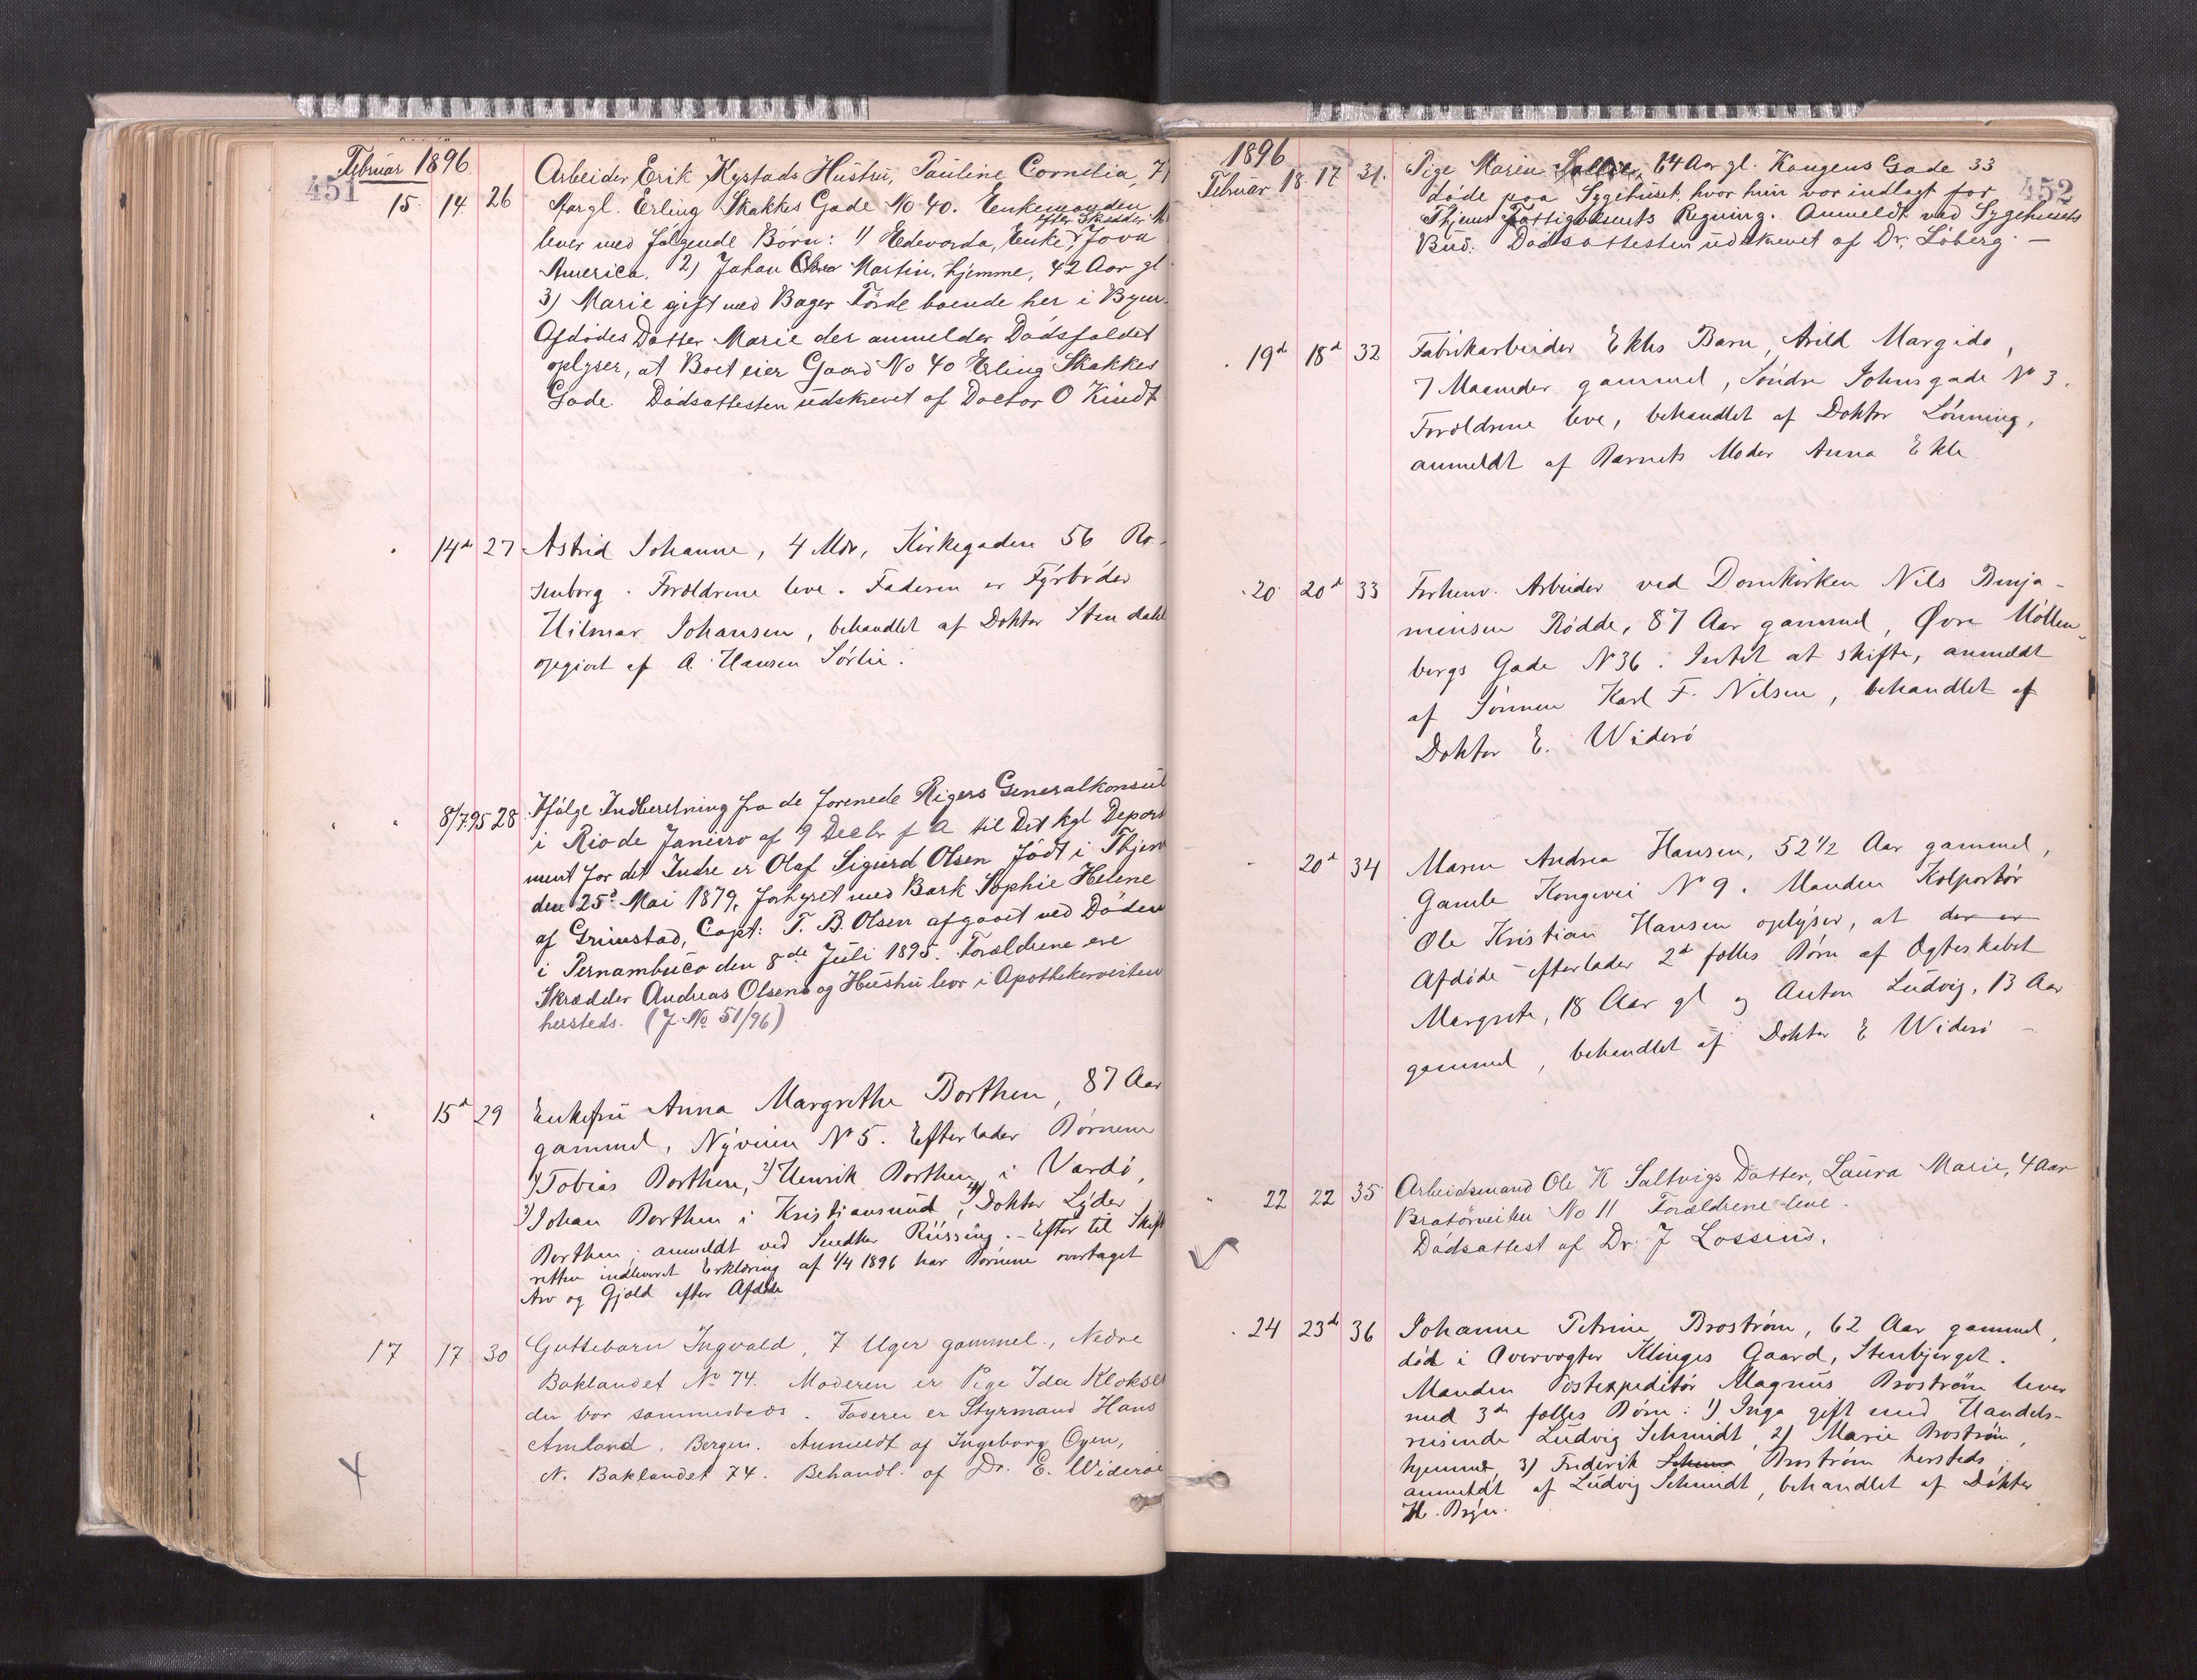 Februar 1896
451
15. 14. 26 Arbeider Erik Hystads Hustru, Pauline Cornelia, 71
Aargl. Erling Skakkes Gade No 40. Enkemanden
efter Skrædder
lever med følgende Børn: 1) Hedevarda, Enke, Jova
America. 2) Johan Martin, hjemme, 42 Aar gl
3) Marie gift med Bager Förde boende her i Byen.
Afdödes Datter Marie der anmelder Dödsfaldet
oplyser, at Boet eier Gaard No 40 Erling Skakkes
Gade. Dödsattesten udskrevet af Doctor O Kindt
14d 27 Astrid Johanne, 4 Mdr, Kirkegaden 56 Ro-
senborg. Forældrene leve. Faderen er Fyrböder
Hilmar Johansen, behandlet af Doktor Stendahl
opgivet af A. Hansen Sörlie.
" " 8/7.95 28 Ifölge Indberetning fra de forenede Rigers Generalkonsul
i Rio de Janeiro af 9 Decbr f A til Det kgl Depart
ment for det Indre er Olaf Sigurd Olsen födt i Thjem
den 25de Mai 1879, forhyret med Bark Sophie Helene
af Grimstad, Capt: T. B. Olsen afgaaet ved Döden
i Pernambuco den 8de Juli 1895. Forældrene ere
Skrædder Andreas Olsen og Hustru bor i Apothekerveiten
hersteds. (J. No 51/96)
" 15d 29 Enkefru Anna Margrethe Borthen, 87 Aar
gammel, Nyveien No 5. Efterlader Börnene
1) Tobias Borthen, 2) Henrik Borthen i Vardö,
3) Johan Borthen i Kristiansund, 4) Doktor Lyder
Borthen; anmeldt ved Snedker Rüssing. - Efter til Skift
retten indleveret Erklæring af 1/4 1896 har Börnene overtaget
Arv og Gjæld efter Afdöde
17 17 30 Guttebarn Ingvald, 7 Uger gammel., Nedre
Baklandet No 74. Moderen er Pige Ida Klokset
der bor sammesteds. Faderen er Styrmand Hans
Amland, Bergen. Anmeldt af Ingeborg Oyen,
N. Baklandet 74. Behandl. af Dr. E. Wideröe
1896
452
Februar 18. 17 31. Pige Maren 64 Aar gl. Kongens Gade 33
döde paa Sygehuset, hvor hun var indlagt for
Thjems Fattigvæsents Regning. Anmeldt ved Sygehusets
Bud. Dödsattesten udskrevet af Dr. Löberg. —
. 19d 18d 32 Fabrikarbeider Ekles Barn, Arild Margido,
7 Maaneder gammel, Söndre Johnsgade No 3.
Forældrene leve, behandlet af Doktor Lönning,
anmeldt af Barnets Moder Anna Ekle
. 20 20d 33 Forhenv. Arbeider ved Domkirken Nils Benja-
minsen Rödde, 87 Aar gammel, Øvre Möllen-
bergs Gade No 36. Intet at skifte, anmeldt
af Sönnen Karl F. Nilsen, behandlet af
Doktor E. Widerö
" 20d 34 Maren Andrea Hansen, 52 1/2 Aar gammel,
Gamle Kongevei No 9. Manden Kolportör
Ole Kristian Hansen oplyser, at der er
Afdöde efterlader 2d fælles Börn af Ægteskabet
Margrete, 18 Aar gl og Anton Ludvig, 13 Aar
gammel, behandlet af Doktor E Widerö —
" 22 22 35 Arbeidsmand Ole K Saltvigs Datter, Laura Marie, 4 Aar
Bratörveiten No 11 Forældrene leve.
Dödsattest af Dr. J Lossius.
. 24 23d 36 Johanne Petrine Broström, 62 Aar gammel,
död i Overvogter Klinges Gaard, Stenbjerget.
Manden Postexpeditör Magnus Broström lever
med 3de fælles Börn: 1) Inga gift med Handels-
reisende Ludvig Schmidt, 2) Marie Broström,
hjemme, 3) Frederik Broström hersteds,
anmeldt af Ludvig Schmidt, behandlet af Doktor
H. Bryn.